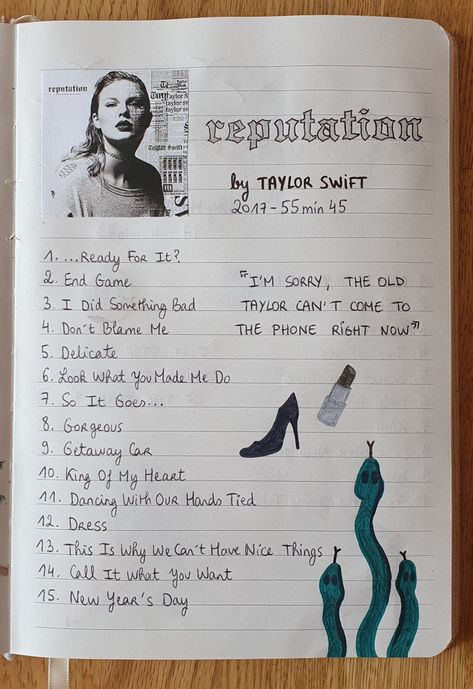 reputation
Taylor Swift
reputation
by TAYLOR SWIFT
2017 - 55 min 45
1. ...Ready For It?
2. End Game
3. I Did Something Bad
4. Don't Blame Me
5. Delicate
6. Look What You Made Me Do
7. So It Goes...
8. Gorgeous
9. Getaway Car
10. King Of My Heart
11. Dancing With Our Hands Tied
12. Dress
13. This Is Why We Can't Have Nice Things
14. Call It What You Want
15. New Year's Day
"I'M SORRY, THE OLD
TAYLOR CAN'T COME TO
THE PHONE RIGHT NOW"